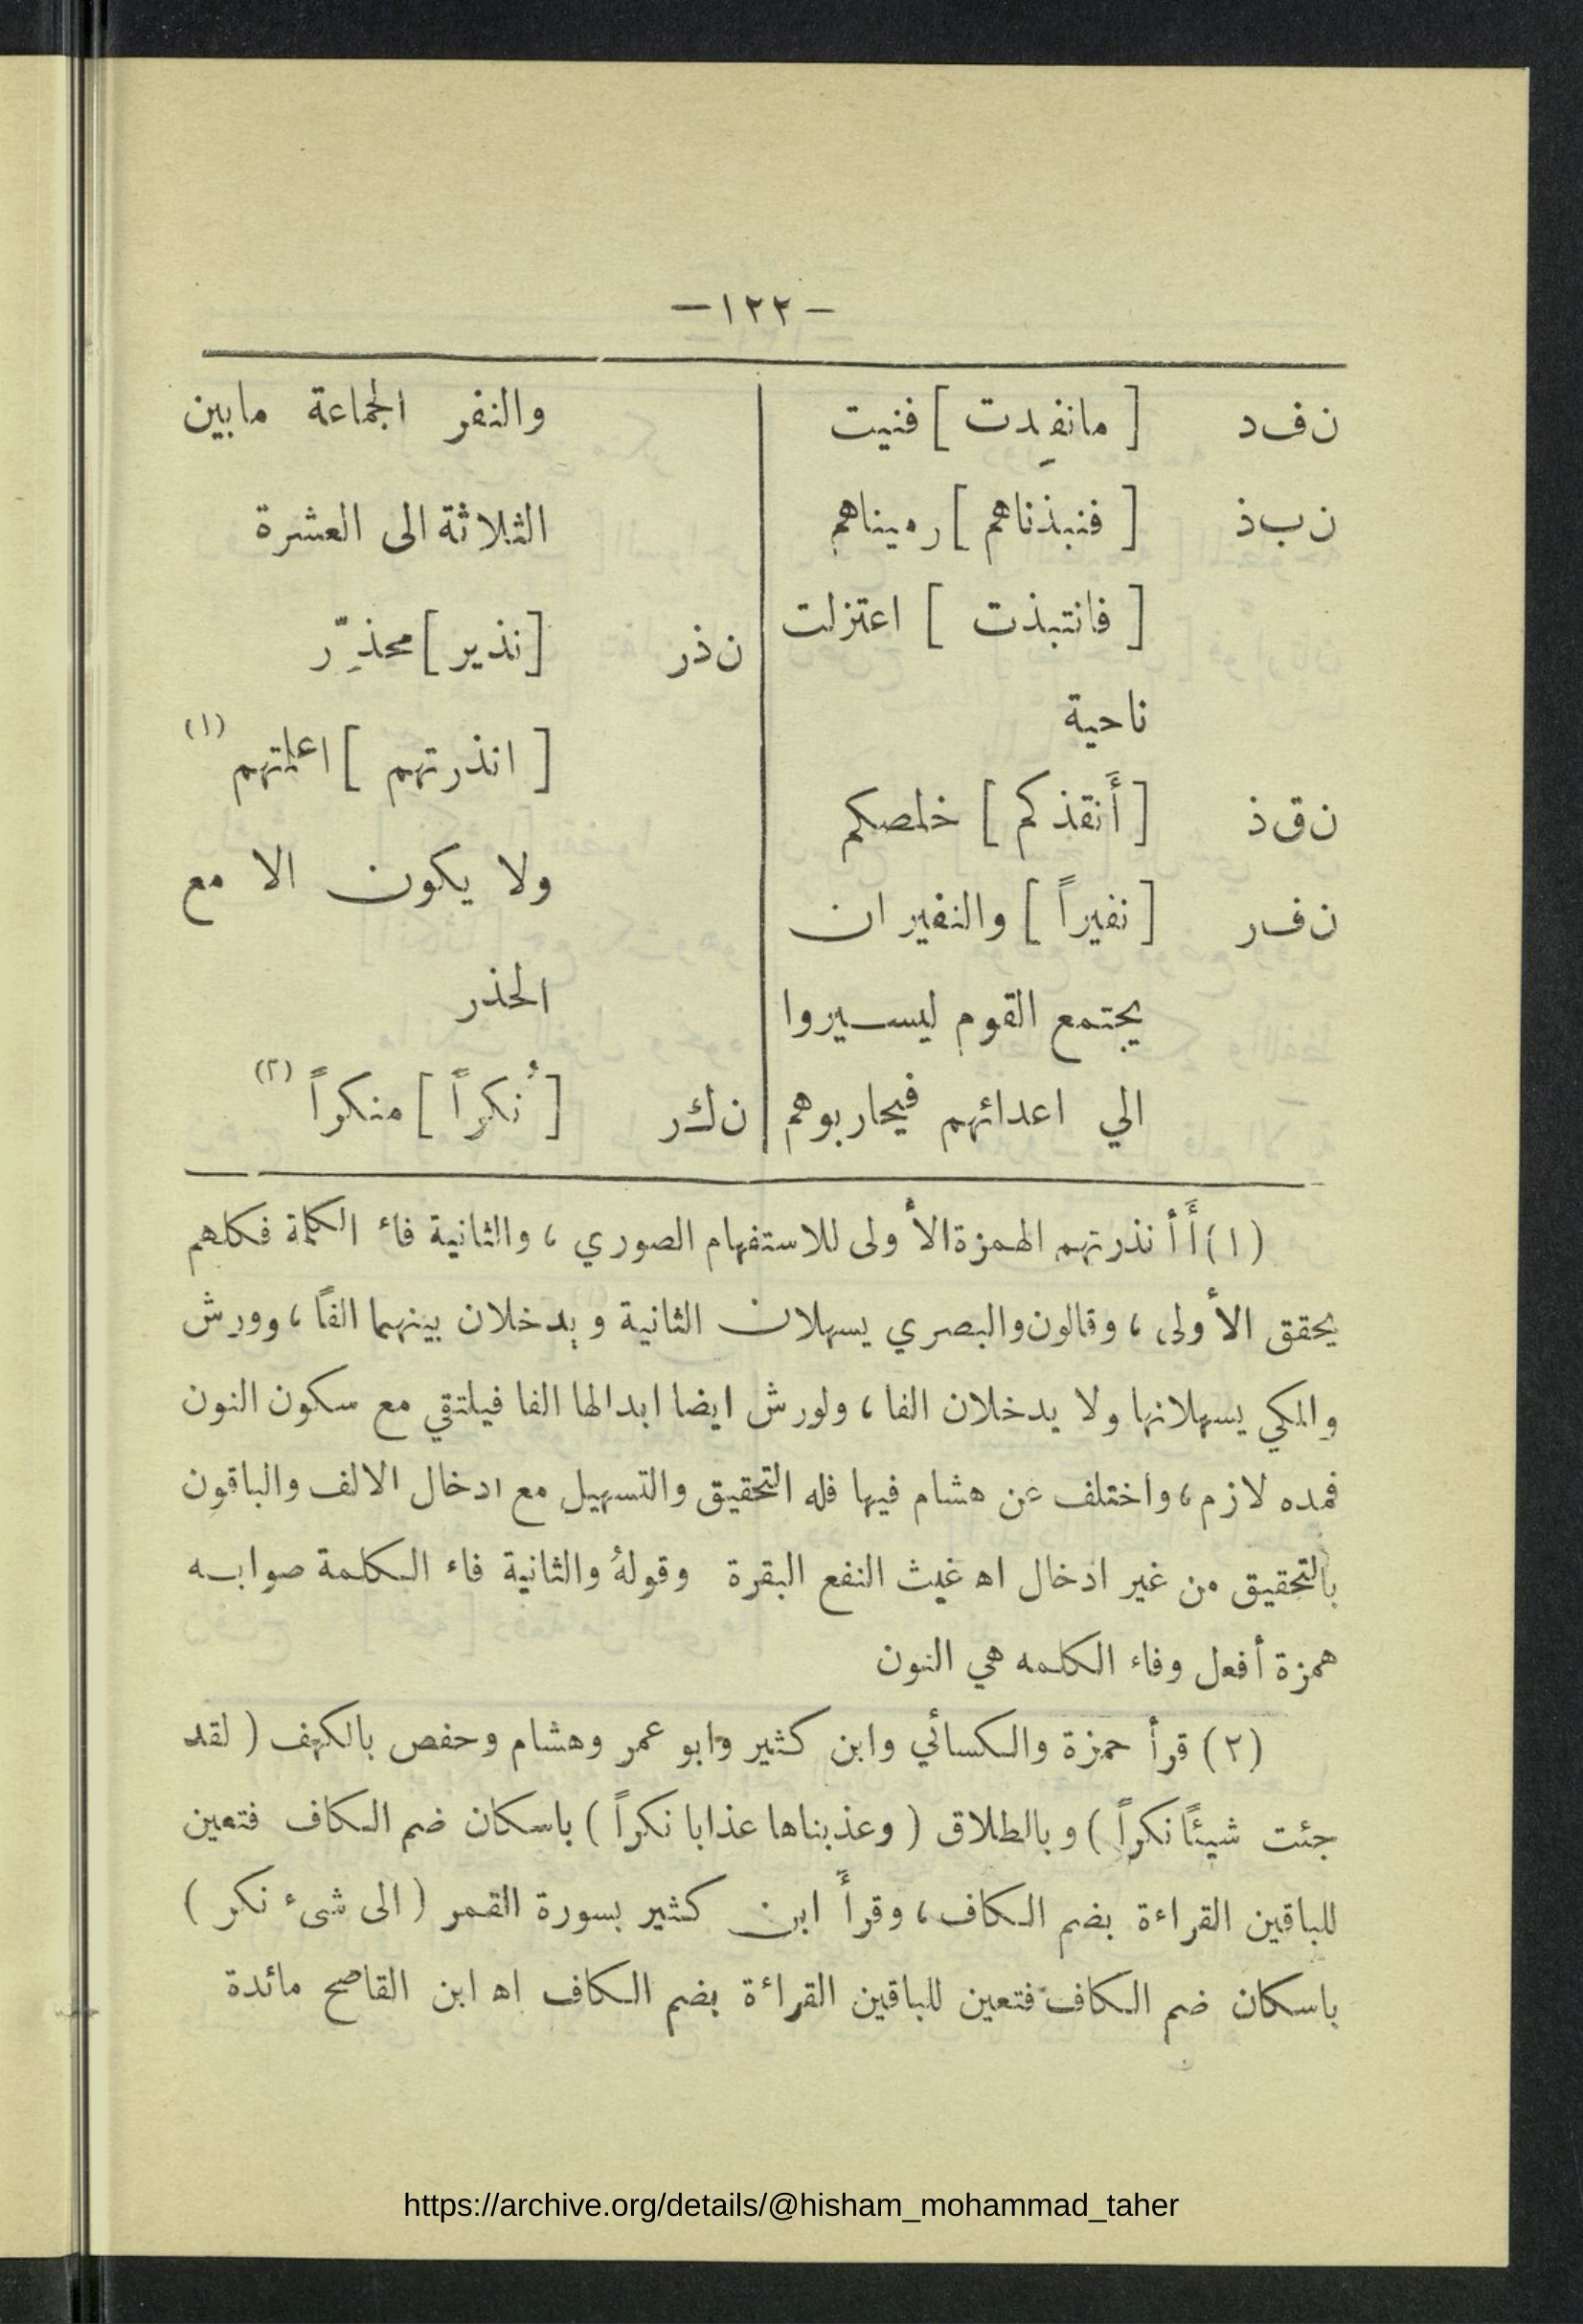 -١٢٢-
ن ف د [ مانفِدت ] فنيت
ن ب ذ [ فنبذناهم ] رميناهم
[ فانتبذت ] اعتزلت
ناحية
ن ق ذ [ أَنقذكم ] خلصكم
ن ف ر [ نفيراً ] والنفير ان
يجتمع القوم ليسيروا
الي اعدائهم فيحاربوهم
والنفر الجماعة مابين
الثلاثة الى العشرة
ن ذ ر [نذير] محذِّر
[ انذرتهم ] اعلمتهم (١)
ولا يكون الا مع
الحذر
ن ك ر [ نُكراً ] منكراً (٢)
(١) أَأنذرتهم الهمزة الأولى للاستفهام الصوري ، والثانية فاء الكلمة فكلهم
يحقق الأولى ، وقالون والبصري يسهلان الثانية و يدخلان بينهما الفاً ، وورش
والمكي يسهلانها ولا يدخلان الفا ، ولورش ايضا ابدالها الفا فيلتقي مع سكون النون
فمده لازم ، واختلف عن هشام فيها فله التحقيق والتسهيل مع ادخال الالف والباقون
بالتحقيق من غير ادخال اه غيث النفع البقرة وقولهُ والثانية فاء الكلمة صوابه
همزة أفعل وفاء الكلمه هي النون
(٢) قرأ حمزة والكسائي وابن كثير وابو عمر وهشام وحفص بالكهف ( لقد
جئت شيئاً نكراً ) و بالطلاق ( وعذبناها عذابا نكراً ) باسكان ضم الكاف فتعين
للباقين القراءة بضم الكاف ، وقرأَ ابن كثير بسورة القمر ( الى شىء نكر )
باسكان ضم الكاف فتعين للباقين القراءة بضم الكاف اه ابن القاصح مائدة
https://archive.org/details/@hisham_mohammad_taher